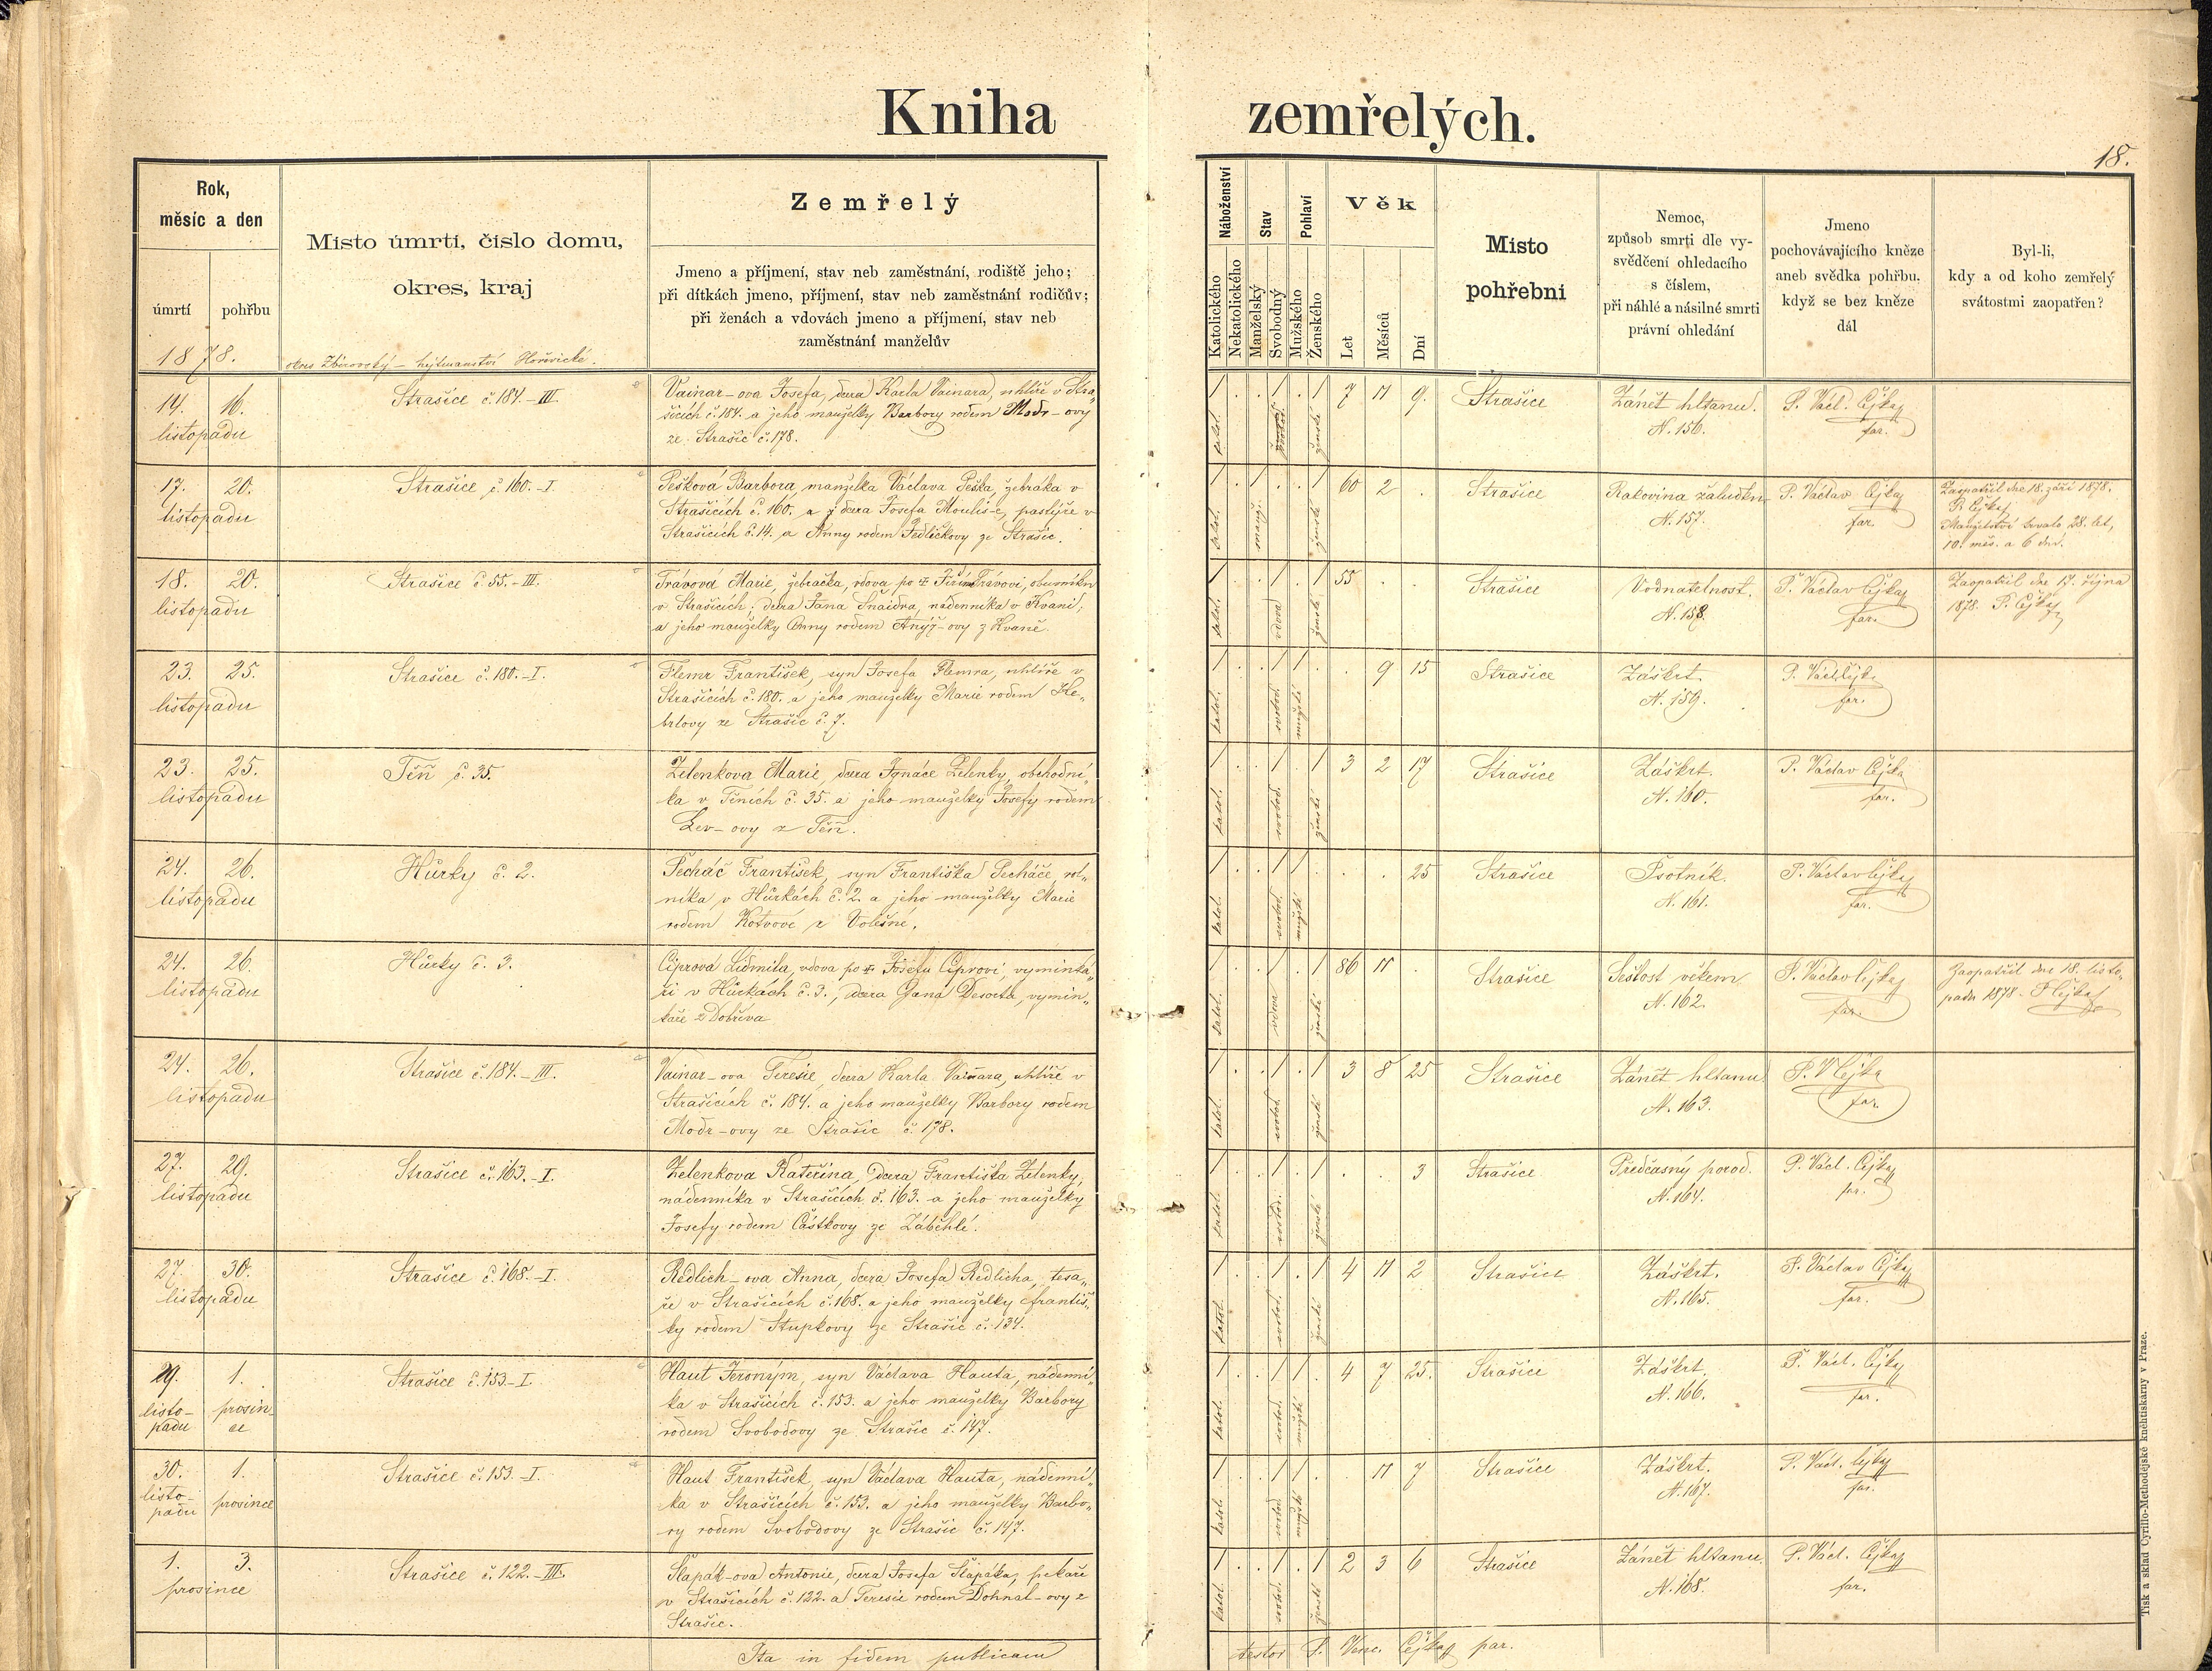 Kniha zemřelých.
18.
Rok,
měsíc a den
úmrtí pohřbu
1878.
Místo úmrtí, číslo domu,
okres, kraj
okres Zbirovský – hejtmanství Hořovické.
Zemřelý
Jmeno a příjmení, stav neb zaměstnání, rodiště jeho;
při dítkách jmeno, příjmení, stav neb zaměstnání rodičův;
při ženách a vdovách jmeno a příjmení, stav neb
zaměstnání manželův
Náboženství
Katolického
Nekatolického
Stav
Manželský
Svobodný
Pohlaví
Mužského
Ženského
Věk
Let
Měsíců
Dní
Místo
pohřební
Nemoc,
způsob smrti dle vy-
svědčení ohledacího
s číslem,
při náhlé a násilné smrti
právní ohledání
Jmeno
pochovávajícího kněze
aneb svědka pohřbu,
když se bez kněze
dál
Byl-li,
kdy a od koho zemřelý
svátostmi zaopatřen?
14. 16.
listopadu
Strašice č. 184.-III.
Vainar-ova Josefa, dcera Karla Vainara, uhlíře v Stra-
šicích č. 184. a jeho manželky Barbory rodem Modr-ovy
ze Strašic č. 178.
katol. svobod. ženské
7 11 9.
Strašice
Zánět hltanu.
N. 156.
P. Václ. Čejka
far.
17. 20.
listopadu
Strašice č. 160.-I.
Pešková Barbora, manželka Václava Peška, žebráka v
Strašicích č. 160. a dcera Josefa Moulis-e, pastýře v
Strašicích č. 14. a Anny rodem Jedličkovy ze Strašic.
katol. manž. ženské
60 2 .
Strašice
Rakovina žaludku
N. 157.
P. Václav Čejka
far.
Zaopatřil dne 18. září 1878.
P. Čejka
Manželství trvalo 28. let,
10. měs. a 6 dní.
18. 20.
listopadu
Strašice č. 55.-III.
Trávová Marie, žebračka, vdova po † Trávovi,
v Strašicích; dcera Jana Šnaidra, nádenníka v Kvani,
a jeho manželky Anny rodem z Kvaně.
katol. vdova ženské
55 . .
Strašice
Vodnatelnost.
N. 158.
P. Václav Čejka
far.
Zaopatřil dne 17. října
1878. P. Čejka
23. 25.
listopadu
Strašice č. 180.-I.
Flemr František, syn Josefa Flemra, uhlíře v
Strašicích č. 180. a jeho manželky Marie rodem He-
brlovy ze Strašic č. 7.
katol. svobod. mužské
. 9 15
Strašice
Záškrt.
N. 159.
P. Václ. Čejka
far.
23. 25.
listopadu
Těň č. 35.
Zelenkova Marie, dcera Ignáce Zelenky, obchodní-
ka v Těních č. 35. a jeho manželky Josefy rodem
Lev-ovy z Těň.
katol. svobod. ženské
3 2 17
Strašice
Záškrt.
N. 160.
P. Václav Čejka
far.
24. 26.
listopadu
Hůrky č. 2.
Pecháč František, syn Františka Pecháče, rol-
níka v Hůrkách č. 2. a jeho manželky Marie
rodem Kotvové z Volešné.
katol. svobod. mužské
. . 25
Strašice
Psotník.
N. 161.
P. Václav Čejka
far.
24. 26.
listopadu
Hůrky č. 3.
Ciprová Lidmila, vdova po † Josefu Ciprovi, výminká-
ři v Hůrkách č. 3., dcera Jana Desorta, výmin-
káře z Dobříva
katol. vdova ženské
86 11 .
Strašice
Sešlost věkem
N. 162.
P. Václav Čejka
far.
Zaopatřil dne 18. listo-
padu 1878. P. Čejka
24. 26.
listopadu
Strašice č. 184.-III.
Vainar-ova Teresie, dcera Karla Vainara, uhlíře v
Strašicích č. 184. a jeho manželky Barbory rodem
Modr-ovy ze Strašic č. 178.
katol. svobod. ženské
3 8 25
Strašice
Zánět hltanu
N. 163.
P. V. Čejka
far.
27. 29.
listopadu
Strašice č. 163.-I.
Zelenkova Kateřina, dcera Františka Zelenky,
nádenníka v Strašicích č. 163. a jeho manželky
Josefy rodem Částkovy ze Záběhlé.
katol. svobod. ženské
. . 3
Strašice
Předčasný porod.
N. 164.
P. Václ. Čejka
far.
27. 30.
listopadu
Strašice č. 168.-I.
Redlich-ova Anna, dcera Josefa Redlicha, tesa-
ře v Strašicích č. 168. a jeho manželky Františ-
ky rodem Stupkovy ze Strašic č. 134.
katol. svobod. ženské
4 11 2
Strašice
Záškrt.
N. 165.
P. Václav Čejka
far.
29. 1.
listo- prosin-
padu ce
Strašice č. 153-I.
Haut Jeroným, syn Václava Hauta, nádenní-
ka v Strašicích č. 153. a jeho manželky Barbory
rodem Svobodovy ze Strašic č. 147.
katol. svobod. mužské
4 7 25.
Strašice
Záškrt.
N. 166.
P. Václ. Čejka
far.
30. 1.
listo-
padu prosince
Strašice č. 153.-I.
Haut František, syn Václava Hauta, nádenní-
ka v Strašicích č. 153. a jeho manželky Barbo-
ry rodem Svobodovy ze Strašic č. 147.
katol. svobod. mužské
11 7
Strašice
Záškrt.
N. 167.
P. Václ. Čejka
far.
1. 3.
prosince
Strašice č. 122.-III.
Šlapák-ova Antonie, dcera Josefa Šlapáka, pekaře
v Strašicích č. 122. a Teresie rodem Dohnal-ovy z
Strašic.
katol. svobod. ženské
2 3 6
Strašice
Zánět hltanu.
N. 168.
P. Václ. Čejka
far.
Ita in fidem publicam
testor P. Venc. Čejka par.
Tisk a sklad Cyrillo-Methodějské knihtiskárny v Praze.